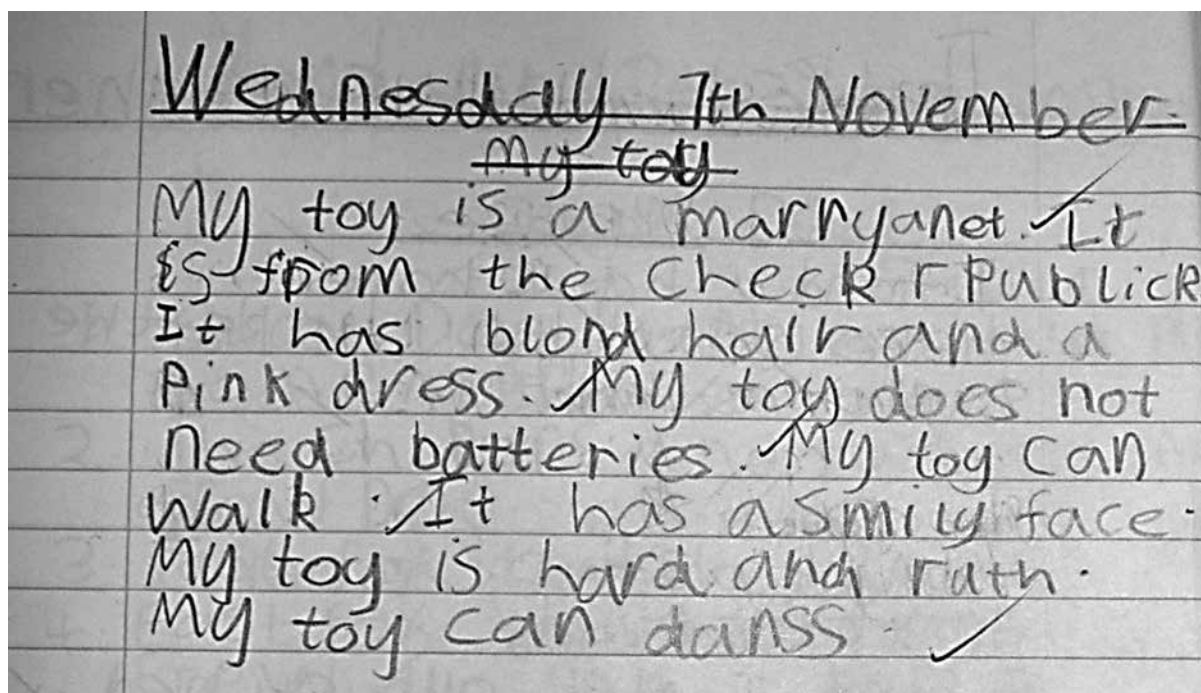 Wednesday 7th November.
My toy
My toy is a marryanet. It
is from the check rpublick
It has blond hair and a
pink dress. My toy does not
need batteries. My toy can
walk. It has a smily face.
My toy is hard and ruth.
My toy can danss.